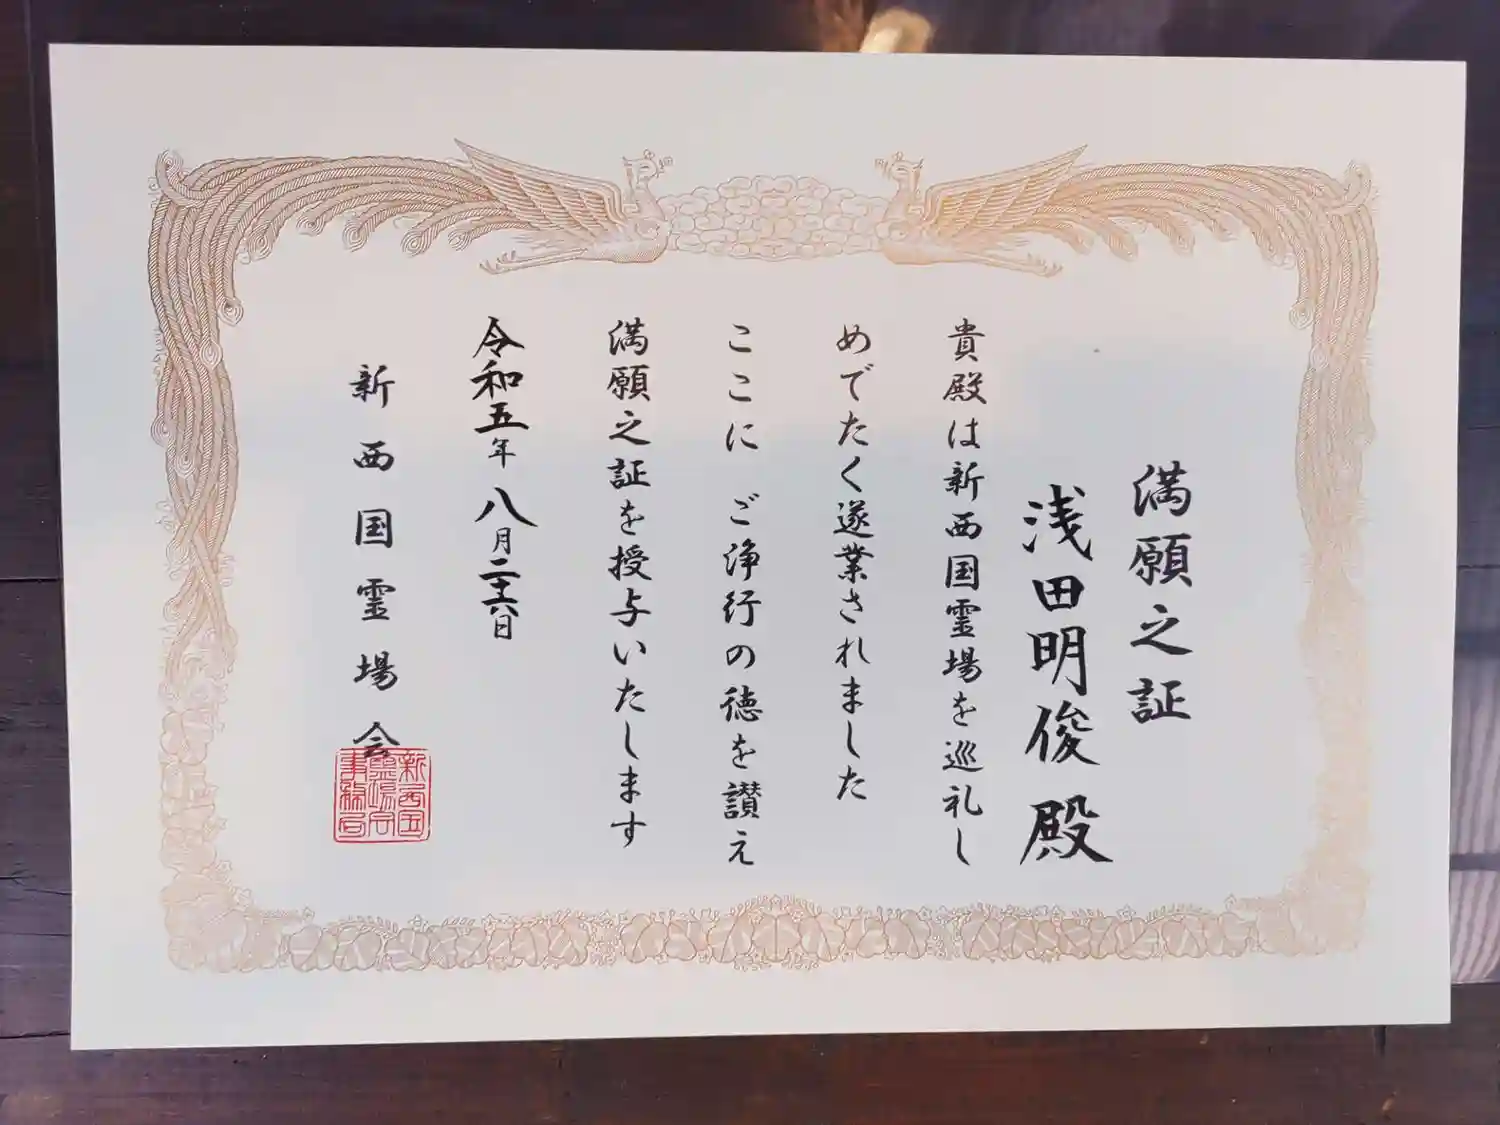 満願之証
浅田明俊殿
貴殿は新西国霊場を巡礼し
めでたく遂業されました
ここに ご浄行の徳を讃え
満願之証を授与いたします
令和五年八月二十六日
新西国霊場会
新西国
霊場会
事務局